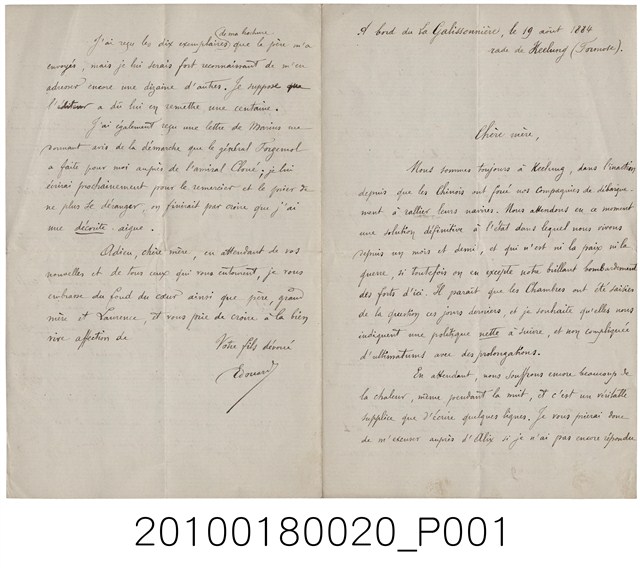 A bord du La Galissonnière, le 19 août 1884
rade de Keelung (Formose).
Chère mère,
Nous sommes toujours à Keelung, dans l'inaction
depuis que les Chinois ont forcé nos compagnies de débarque-
ment à rallier leurs navires. Nous attendons en ce moment
une solution définitive à l'état dans lequel nous vivons
depuis un mois et demi, et qui n'est ni la paix ni la
guerre, si toutefois on en excepte notre brillant bombardement
des forts d'ici. Il parait que les Chambres ont été saisies
de la question ces jours derniers, et je souhaite qu'elles nous
indiquent une politique nette à suivre, et non compliquée
d'ultimatums avec des prolongations.
En attendant, nous souffrons encore beaucoup de
la chaleur, même pendant la nuit, et c'est un véritable
supplice que d'écrire quelques lignes. Je vous prierai donc
de m'excuser auprès d'Alix si je n'ai pas encore répondu
J'ai reçu les dix exemplaires (de ma brochure) que le père m'a
envoyés, mais je lui serais fort reconnaissant de m'en
adresser encore une dizaine d'autres. Je suppose que
l'éditeur a dû lui en remettre une centaine.
J'ai également reçu une lettre de Marius me
donnant avis de la démarche que le général Forgemol
a faite pour moi auprès de l'amiral Cloué; je lui
écrirai prochainement pour le remercier et le prier de
ne plus se déranger, on finirait par croire que j'ai
une décorite aigue.
Adieu, chère mère, en attendant de vos
nouvelles et de tous ceux qui vous entourent, je vous
embrasse du fond du cœur ainsi que père, grand
mère et Laurence, et vous prie de croire à la bien
vive affection de
Votre fils dévoué
Edouard
20100180020_P001